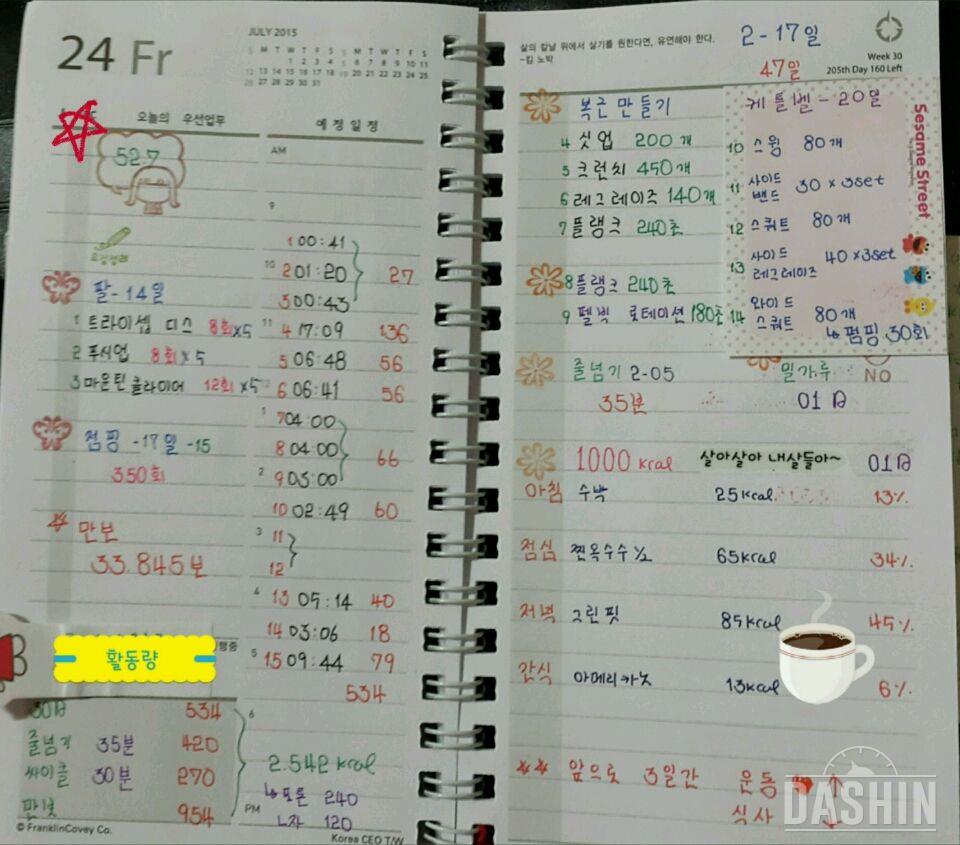 24 Fr
JULY 2015
S M T W T F S S M T W T F S
1 2 3 4 5 6 7 8 9 10 11
12 13 14 15 16 17 18 19 20 21 22 23 24 25
26 27 28 29 30 31
오늘의 우선업무
예정일정
52.7
AM
9
1 00:41
10 2 01:20 27
3 00:43
팔-14일
1 트라이셉 딥스 8회x5
11 4 17:09 136
2 푸시업 8회x5
5 06:48 56
3 마운틴클라이머 12회x5
12 6 06:41 56
1 7 04:00
점핑 -17일 -15
8 04:00 66
350회
2 9 03:00
10 02:49 60
만보
3 11
33.845보
12
4 13 05:14 40
14 03:06 18
활동량
5 15 09:44 79
534
30日 534
6
줄넘기 35분 420
2.542 kcal
싸이클 30분 270
↳토론 240
954
PM
L자 120
© FranklinCovey Co.
Korea CEO T/W
삶의 칼날 위에서 살기를 원한다면, 유연해야 한다.
~킴 노박
2-17일
47일
Week 30
205th Day 160 Left
복근 만들기
4 싯업 200개
5 크런치 450개
6 레그레이즈 140개
7 플랭크 240초
8 플랭크 240초
9 펠빅 로테이션 180초
케틀벨-20일
10 스윙 80개
11 사이드 밴드 30 x 3set
12 스쿼트 80개
13 사이드 레그레이즈 40 x 3set
14 와이드 스쿼트 80개
↳펌핑 30회
Sesame Street
줄넘기 2-05
35분
밀가루 NO
01日
1000 kcal 살아살아 내살들아~ 01日
아침 수박 25kcal 13%
점심 찐옥수수 1/2 65kcal 34%
저녁 그린핏 85kcal 45%
간식 아메리카노 13kcal 6%
** 앞으로 3일간 운동 ↑
식사 ↓
DASHIN